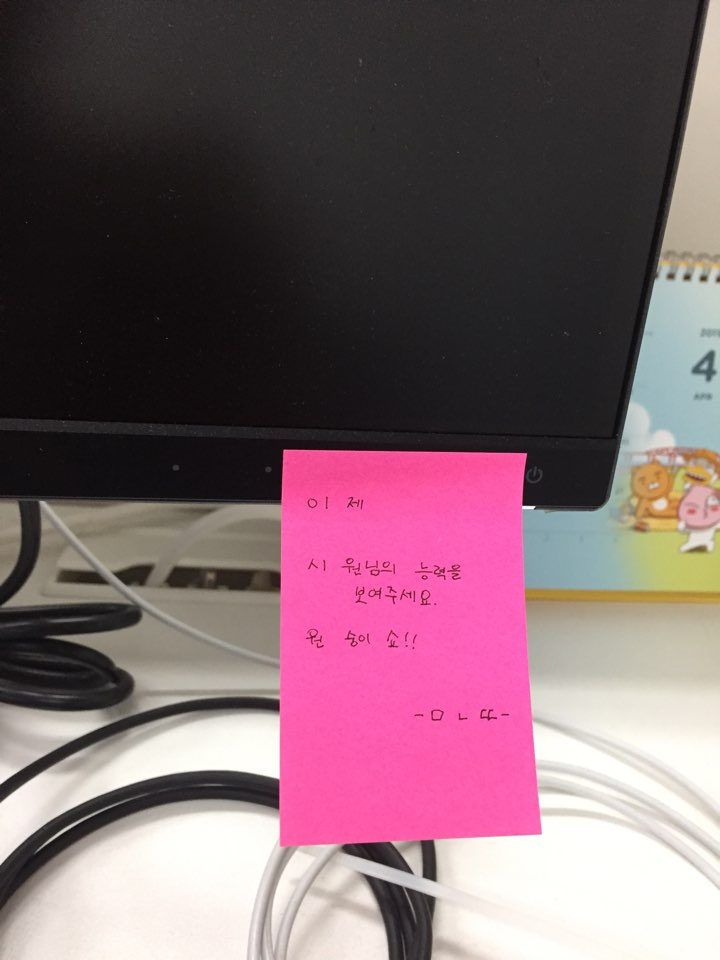 이 제
시 원님의 능력을
보여주세요.
원 숭이 쇼!!
-ㅁㄴㄸ-
4
APR